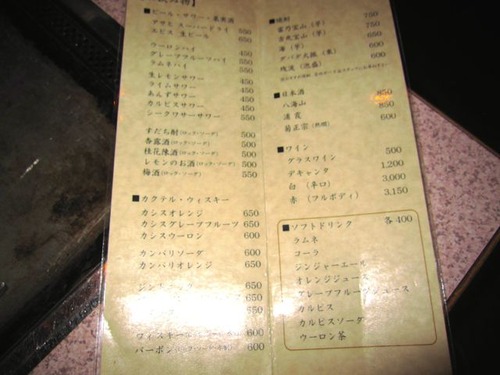 ■ビール・サワー・果実酒
アサヒ スーパードライ 550
エビス 生ビール 650
ウーロンハイ 450
グレープフルーツハイ 550
ラムネハイ 550
生レモンサワー 450
ライムサワー 450
あんずサワー 450
カルピスサワー 450
シークワサーサワー 550
すだち酎(ロック・ソーダ) 500
香露酒(ロック・ソーダ) 500
桂花陳酒(ロック・ソーダ) 500
レモンのお酒(ロック・ソーダ) 500
梅酒(ロック・ソーダ) 550
■カクテル・ウィスキー
カシスオレンジ 650
カシスグレープフルーツ 650
カシスウーロン 600
カンパリソーダ 600
カンパリオレンジ 650
ウィスキー 600
バーボン 600
■焼酎
富乃宝山(芋) 750
吉兆宝山(芋) 750
海(芋) 650
残波(泡盛) 600
■日本酒
八海山 850
浦霞 850
菊正宗 600
■ワイン
グラスワイン 500
デキャンタ 1,200
白(辛口) 3,000
赤(フルボディ) 3,150
■ソフトドリンク 各400
ラムネ
コーラ
ジンジャーエール
オレンジジュース
グレープフルーツジュース
カルピス
カルピスソーダ
ウーロン茶